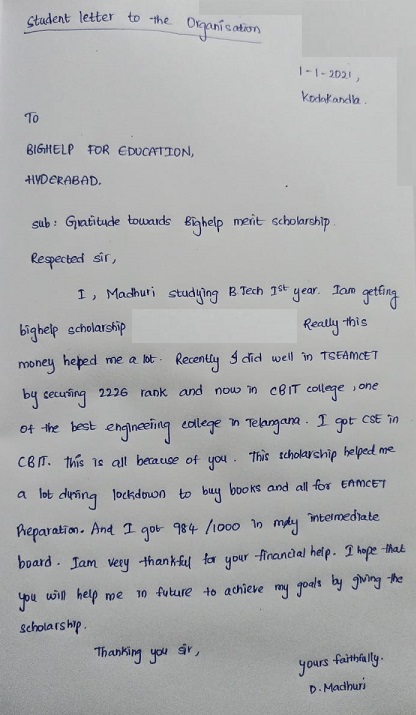 Student letter to the Organisation
1-1-2021,
Kodakandla.
To
BIGHELP FOR EDUCATION,
HYDERABAD.
sub: Gratitude towards Bighelp merit scholarship.
Respected sir,
I, Madhuri studying B.Tech 1st year. Iam getting
bighelp scholarship Really this
money heped me a lot. Recently I did well in TSEAMCET
by securing 2226 rank and now in CBIT college, one
of the best engineering college in Telangana. I got CSE in
CBIT. This is all because of you. This scholarship helped me
a lot during lockdown to buy books and all for EAMCET
Preparation. And I got 984/1000 in my intermediate
board. Iam very thankful for your financial help. I hope that
you will help me in future to achieve my goals by giving the
scholarship.
Thanking you sir,
yours faithfully.
D. Madhuri